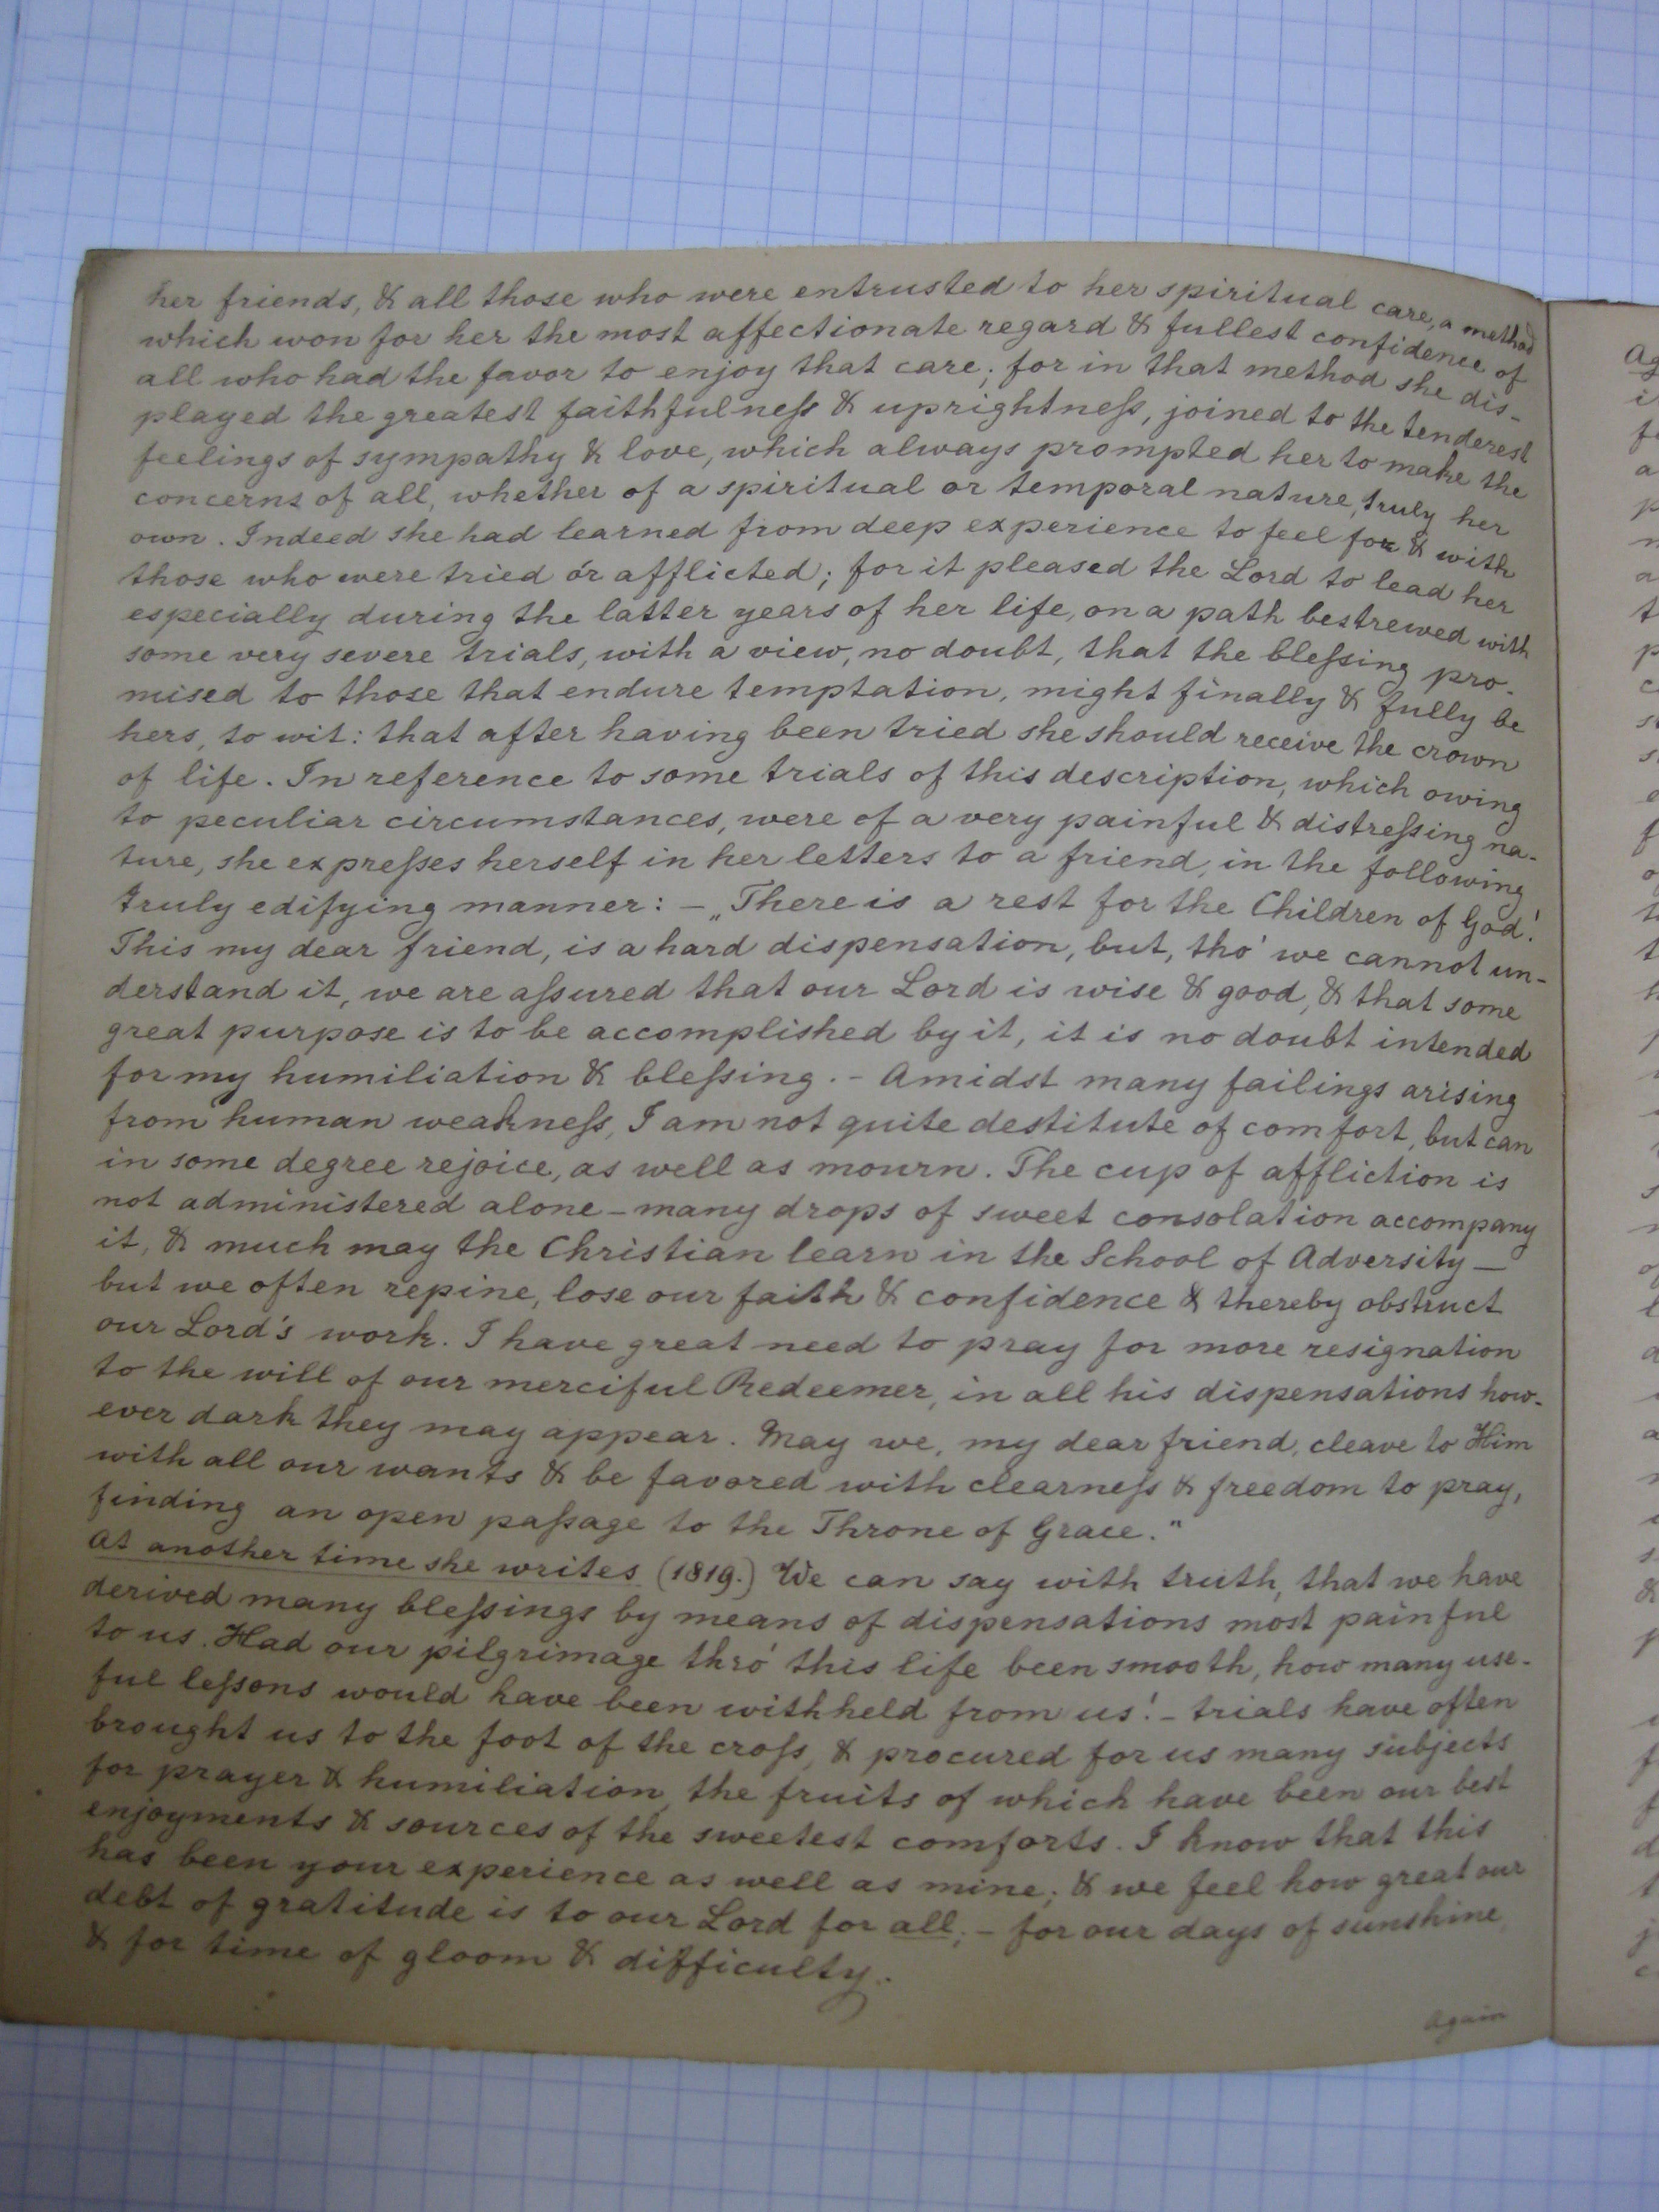 her friends, & all those who were entrusted to her spiritual care, a method
which won for her the most affectionate regard & fullest confidence of
all who had the favor to enjoy that care; for in that method she dis-
played the greatest faithfulneſs & uprightneſs, joined to the tenderest
feelings of sympathy & love, which always prompted her to make the
concerns of all, whether of a spiritual or temporal nature, truly her
own. Indeed she had learned from deep experience to feel for & with
those who were tried or afflicted; for it pleased the Lord to lead her
especially during the latter years of her life, on a path bestrewed with
some very severe trials, with a view, no doubt, that the bleſsing pro-
mised to those that endure temptation, might finally & fully be
hers, to wit: that after having been tried she should receive the crown
of life. In reference to some trials of this description, which owing
to peculiar circumstances, were of a very painful & distreſsing na-
ture, she expreſses herself in her letters to a friend, in the following
truly edifying manner: – „There is a rest for the Children of God!
This my dear friend, is a hard dispensation, but, tho' we cannot un-
derstand it, we are aſsured that our Lord is wise & good, & that some
great purpose is to be accomplished by it, it is no doubt intended
for my humiliation & bleſsing. – Amidst many failings arising
from human weakneſs, I am not quite destitute of comfort, but can
in some degree rejoice, as well as mourn. The cup of affliction is
not administered alone – many drops of sweet consolation accompany
it, & much may the Christian learn in the School of Adversity –
but we often repine, lose our faith & confidence & thereby obstruct
our Lord's work. I have great need to pray for more resignation
to the will of our merciful Redeemer, in all his dispensations how-
ever dark they may appear. May we, my dear friend, cleave to Him
with all our wants & be favored with clearneſs & freedom to pray,
finding an open paſsage to the Throne of Grace."
At another time she writes (1819.) We can say with truth, that we have
derived many bleſsings by means of dispensations most painful
to us. Had our pilgrimage thro' this life been smooth, how many use-
ful leſsons would have been withheld from us! – trials have often
brought us to the foot of the croſs, & procured for us many subjects
for prayer & humiliation, the fruits of which have been our best
enjoyments & sources of the sweetest comforts. I know that this
has been your experience as well as mine; & we feel how great our
debt of gratitude is to our Lord for all; – for our days of sunshine,
& for time of gloom & difficulty.
Again